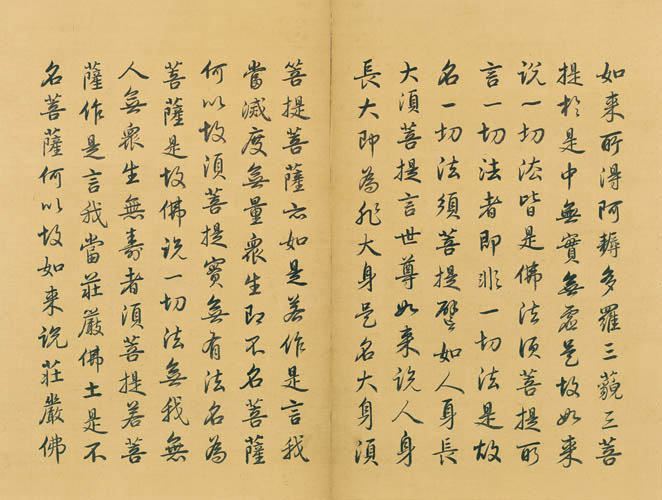 如来所得阿耨多羅三藐三菩
提於是中無實無虛是故如来
说一切法皆是佛法須菩提所
言一切法者即非一切法是故
名一切法須菩提譬如人身長
大須菩提言世尊如来說人身
長大即為非大身是名大身須
菩提菩薩亦如是若作是言我
當滅度無量衆生即不名菩薩
何以故須菩提實無有法名為
菩薩是故佛說一切法無我無
人無衆生無壽者須菩提若菩
薩作是言我當莊嚴佛土是不
名菩薩何以故如来說莊嚴佛